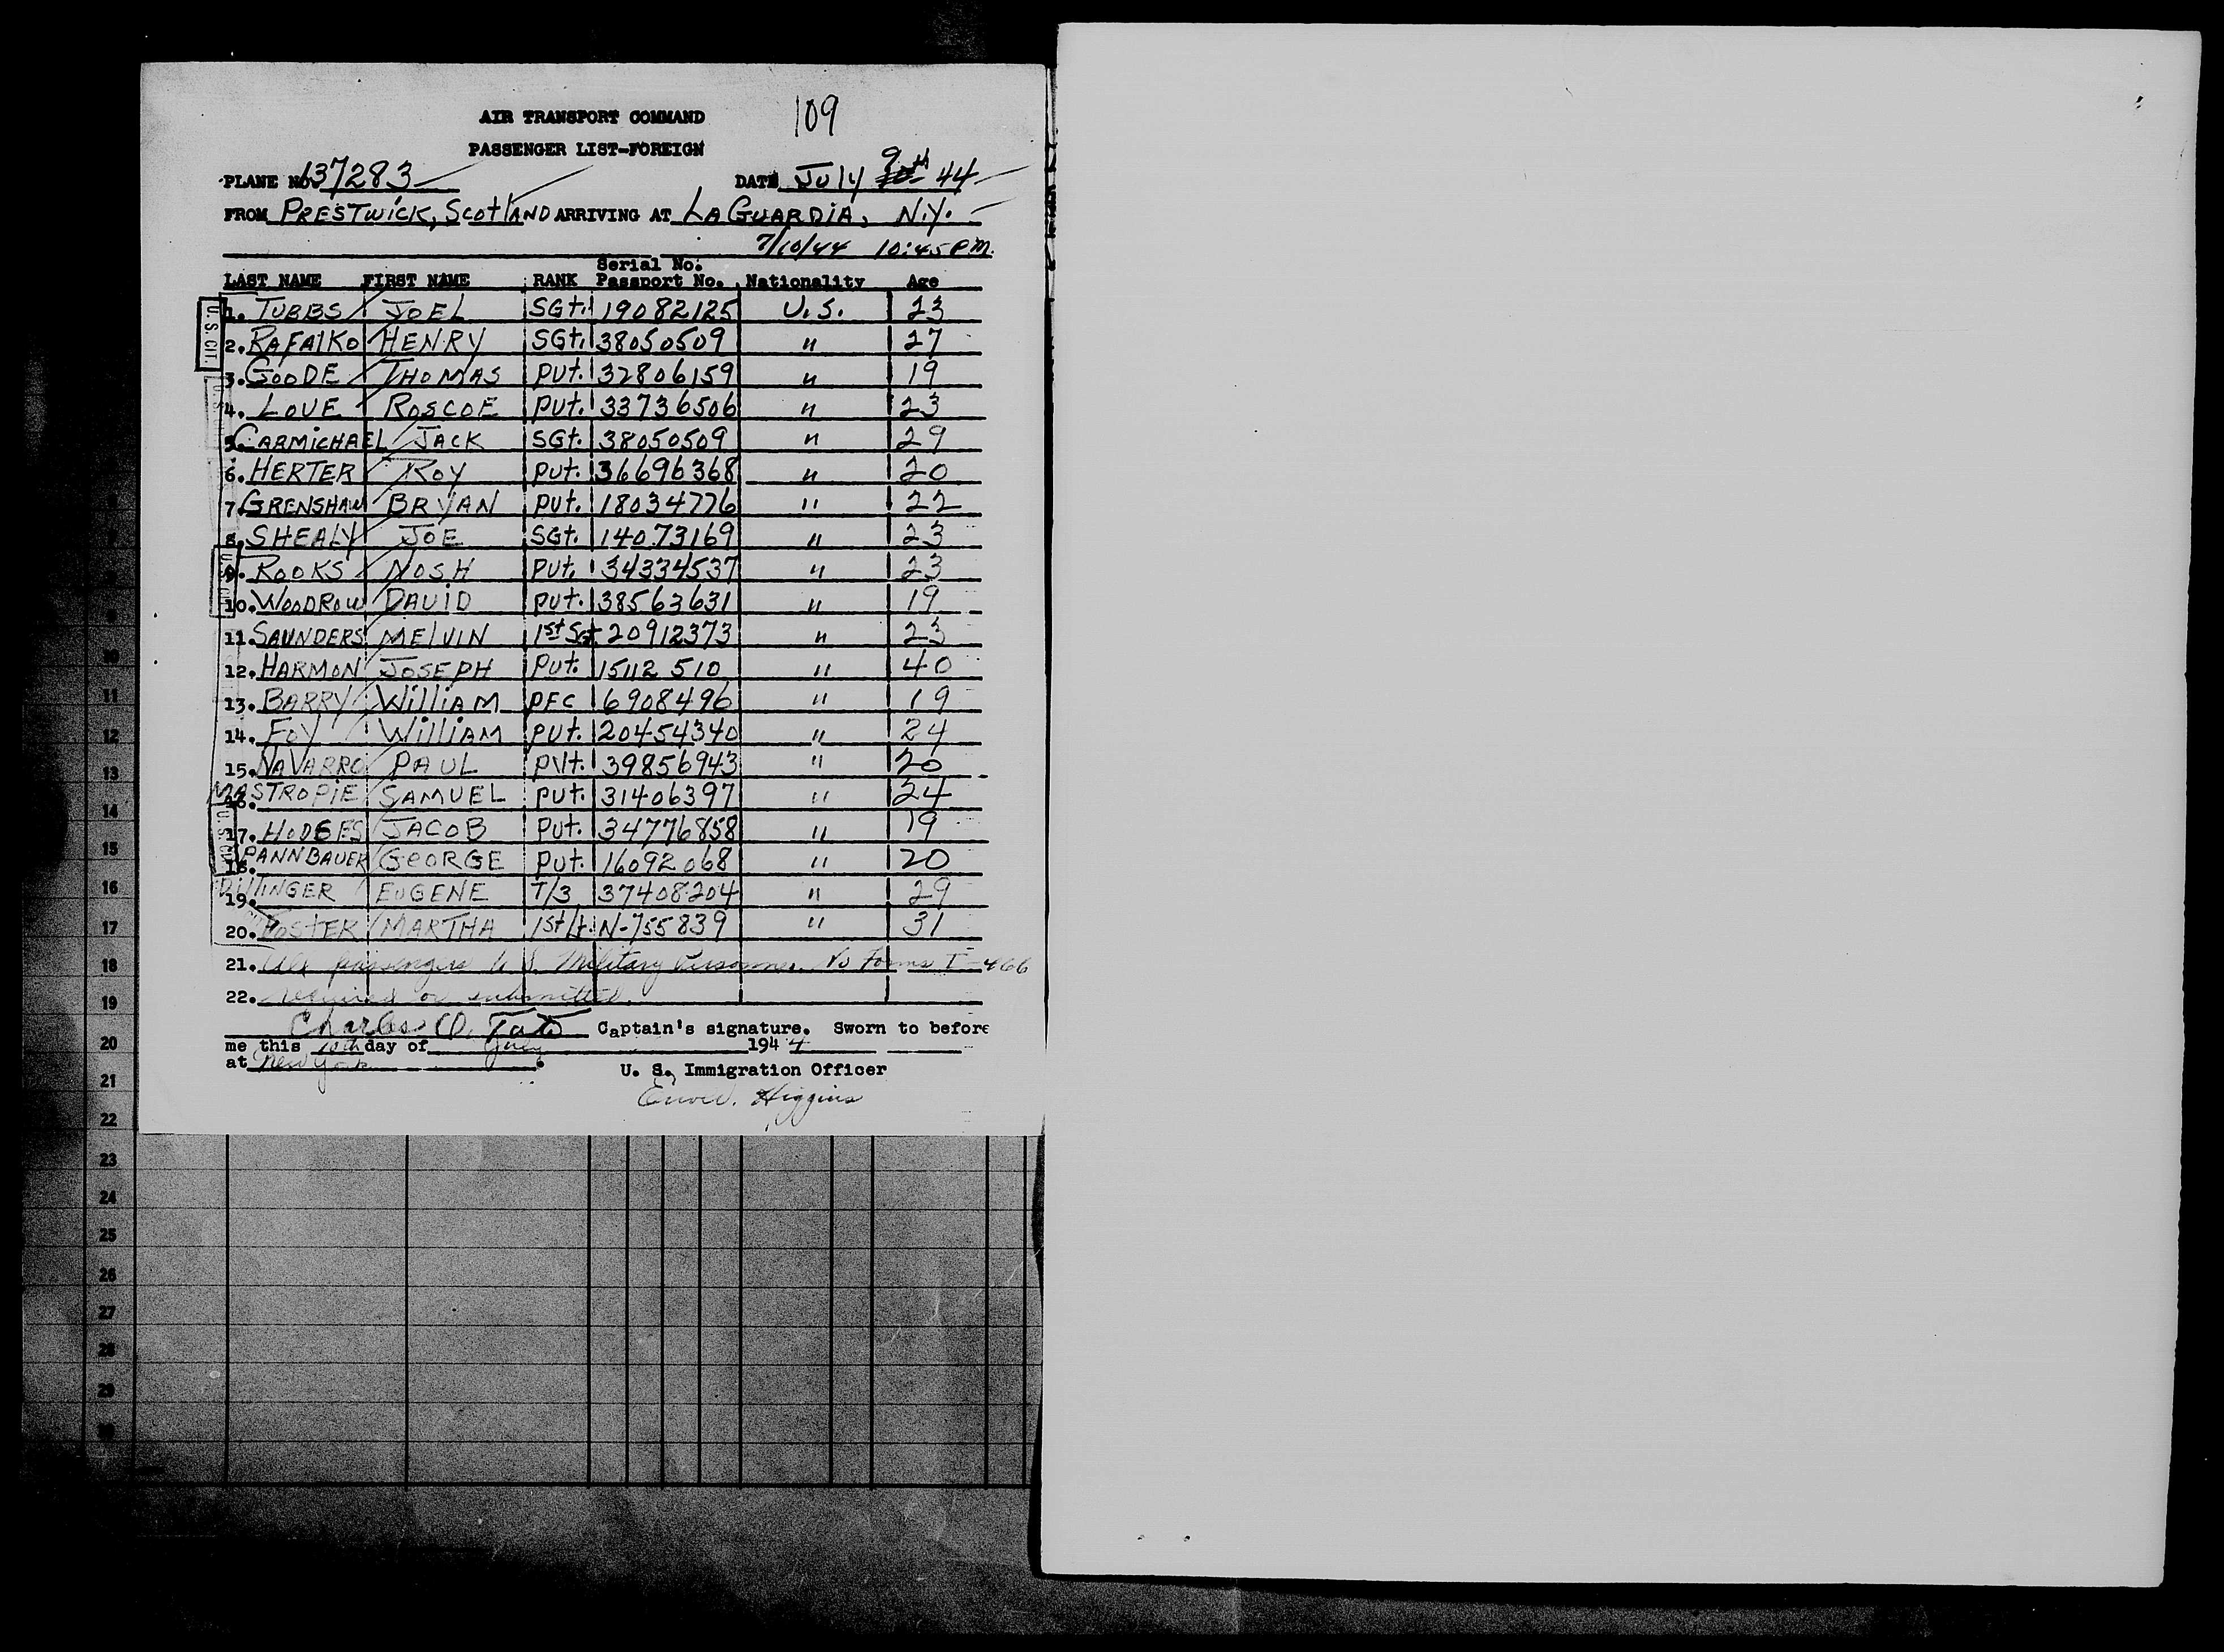 109
AIR TRANSPORT COMMAND
PASSENGER LIST-FOREIGN
PLANE NO. 137283 DATE July 9th 44
FROM PRESTWICK, SCOTLAND ARRIVING AT LA GUARDIA, N.Y.
7/10/44 10:45 PM.
Serial No.
LAST NAME FIRST NAME RANK Passport No. Nationality Age
1. TUBBS JOEL SGt. 19082125 U.S. 23
2. RAFALKO HENRY SGt. 38050509 " 27
3. GOODE THOMAS pvt. 32806159 " 19
4. LOVE ROSCOE pvt. 33736506 " 23
5. CARMICHAEL JACK SGt. 38050509 " 29
6. HERTER ROY pvt. 36696368 " 20
7. GRENSHAW BRYAN pvt. 18034776 " 22
8. SHEALY JOE SGt. 14073169 " 23
9. ROOKS NOSH pvt. 34334537 " 23
10. WOODROW DAVID pvt. 38563631 " 19
11. SAUNDERS MELVIN 1st Sgt 20912373 " 23
12. HARMON JOSEPH pvt. 15112510 " 40
13. BARRY WILLIAM PFC 16908496 " 19
14. FOY WILLIAM pvt. 20454340 " 24
15. NAVARRO PAUL pvt. 39856943 " 20
16. MASTROPIE SAMUEL pvt. 31406397 " 24
17. HODGES JACOB pvt. 34776858 " 19
18. PANNBAUER GEORGE pvt. 16092068 " 20
19. DILLINGER EUGENE T/3 37408204 " 29
20. FOSTER MARTHA 1st Lt. N-755839 " 31
21. All passengers U.S. Military Personnel. No Forms I-466
22. required or submitted.
Charles O. Tate Captain's signature. Sworn to before
me this 10th day of July 1944
at New York.
U. S. Immigration Officer
Higgins
U.S. CIT.
10
11
12
13
14
15
16
17
18
19
20
21
22
23
24
25
26
27
28
29